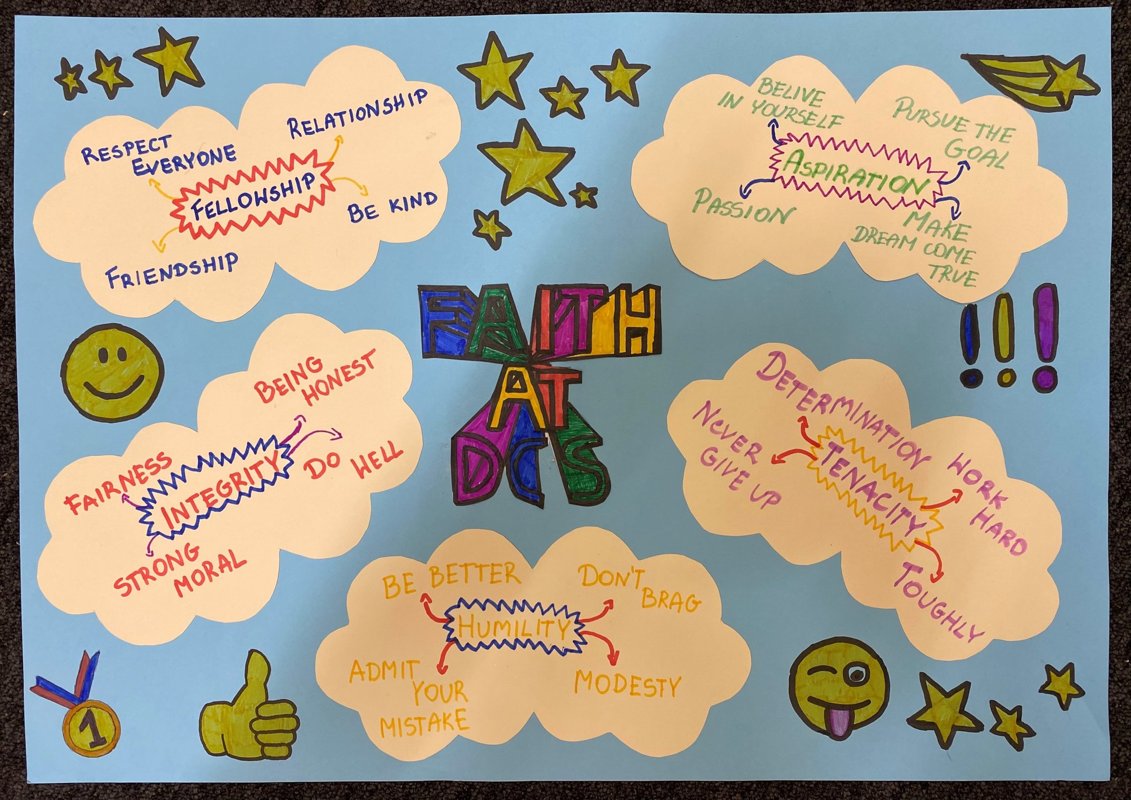 RESPECT
EVERYONE
RELATIONSHIP
FELLOWSHIP
BE KIND
FRIENDSHIP
BELIVE
IN YOURSELF
PURSUE THE
GOAL
ASPIRATION
PASSION
MAKE
DREAM COME
TRUE
FAITH
AT
DCS
!!!
BEING
HONEST
FAIRNESS
INTEGRITY
DO WELL
STRONG
MORAL
DETERMINATION
NEVER
GIVE UP
TENACITY
WORK
HARD
TOUGHLY
BE BETTER
DON'T
BRAG
HUMILITY
ADMIT
YOUR
MISTAKE
MODESTY
1